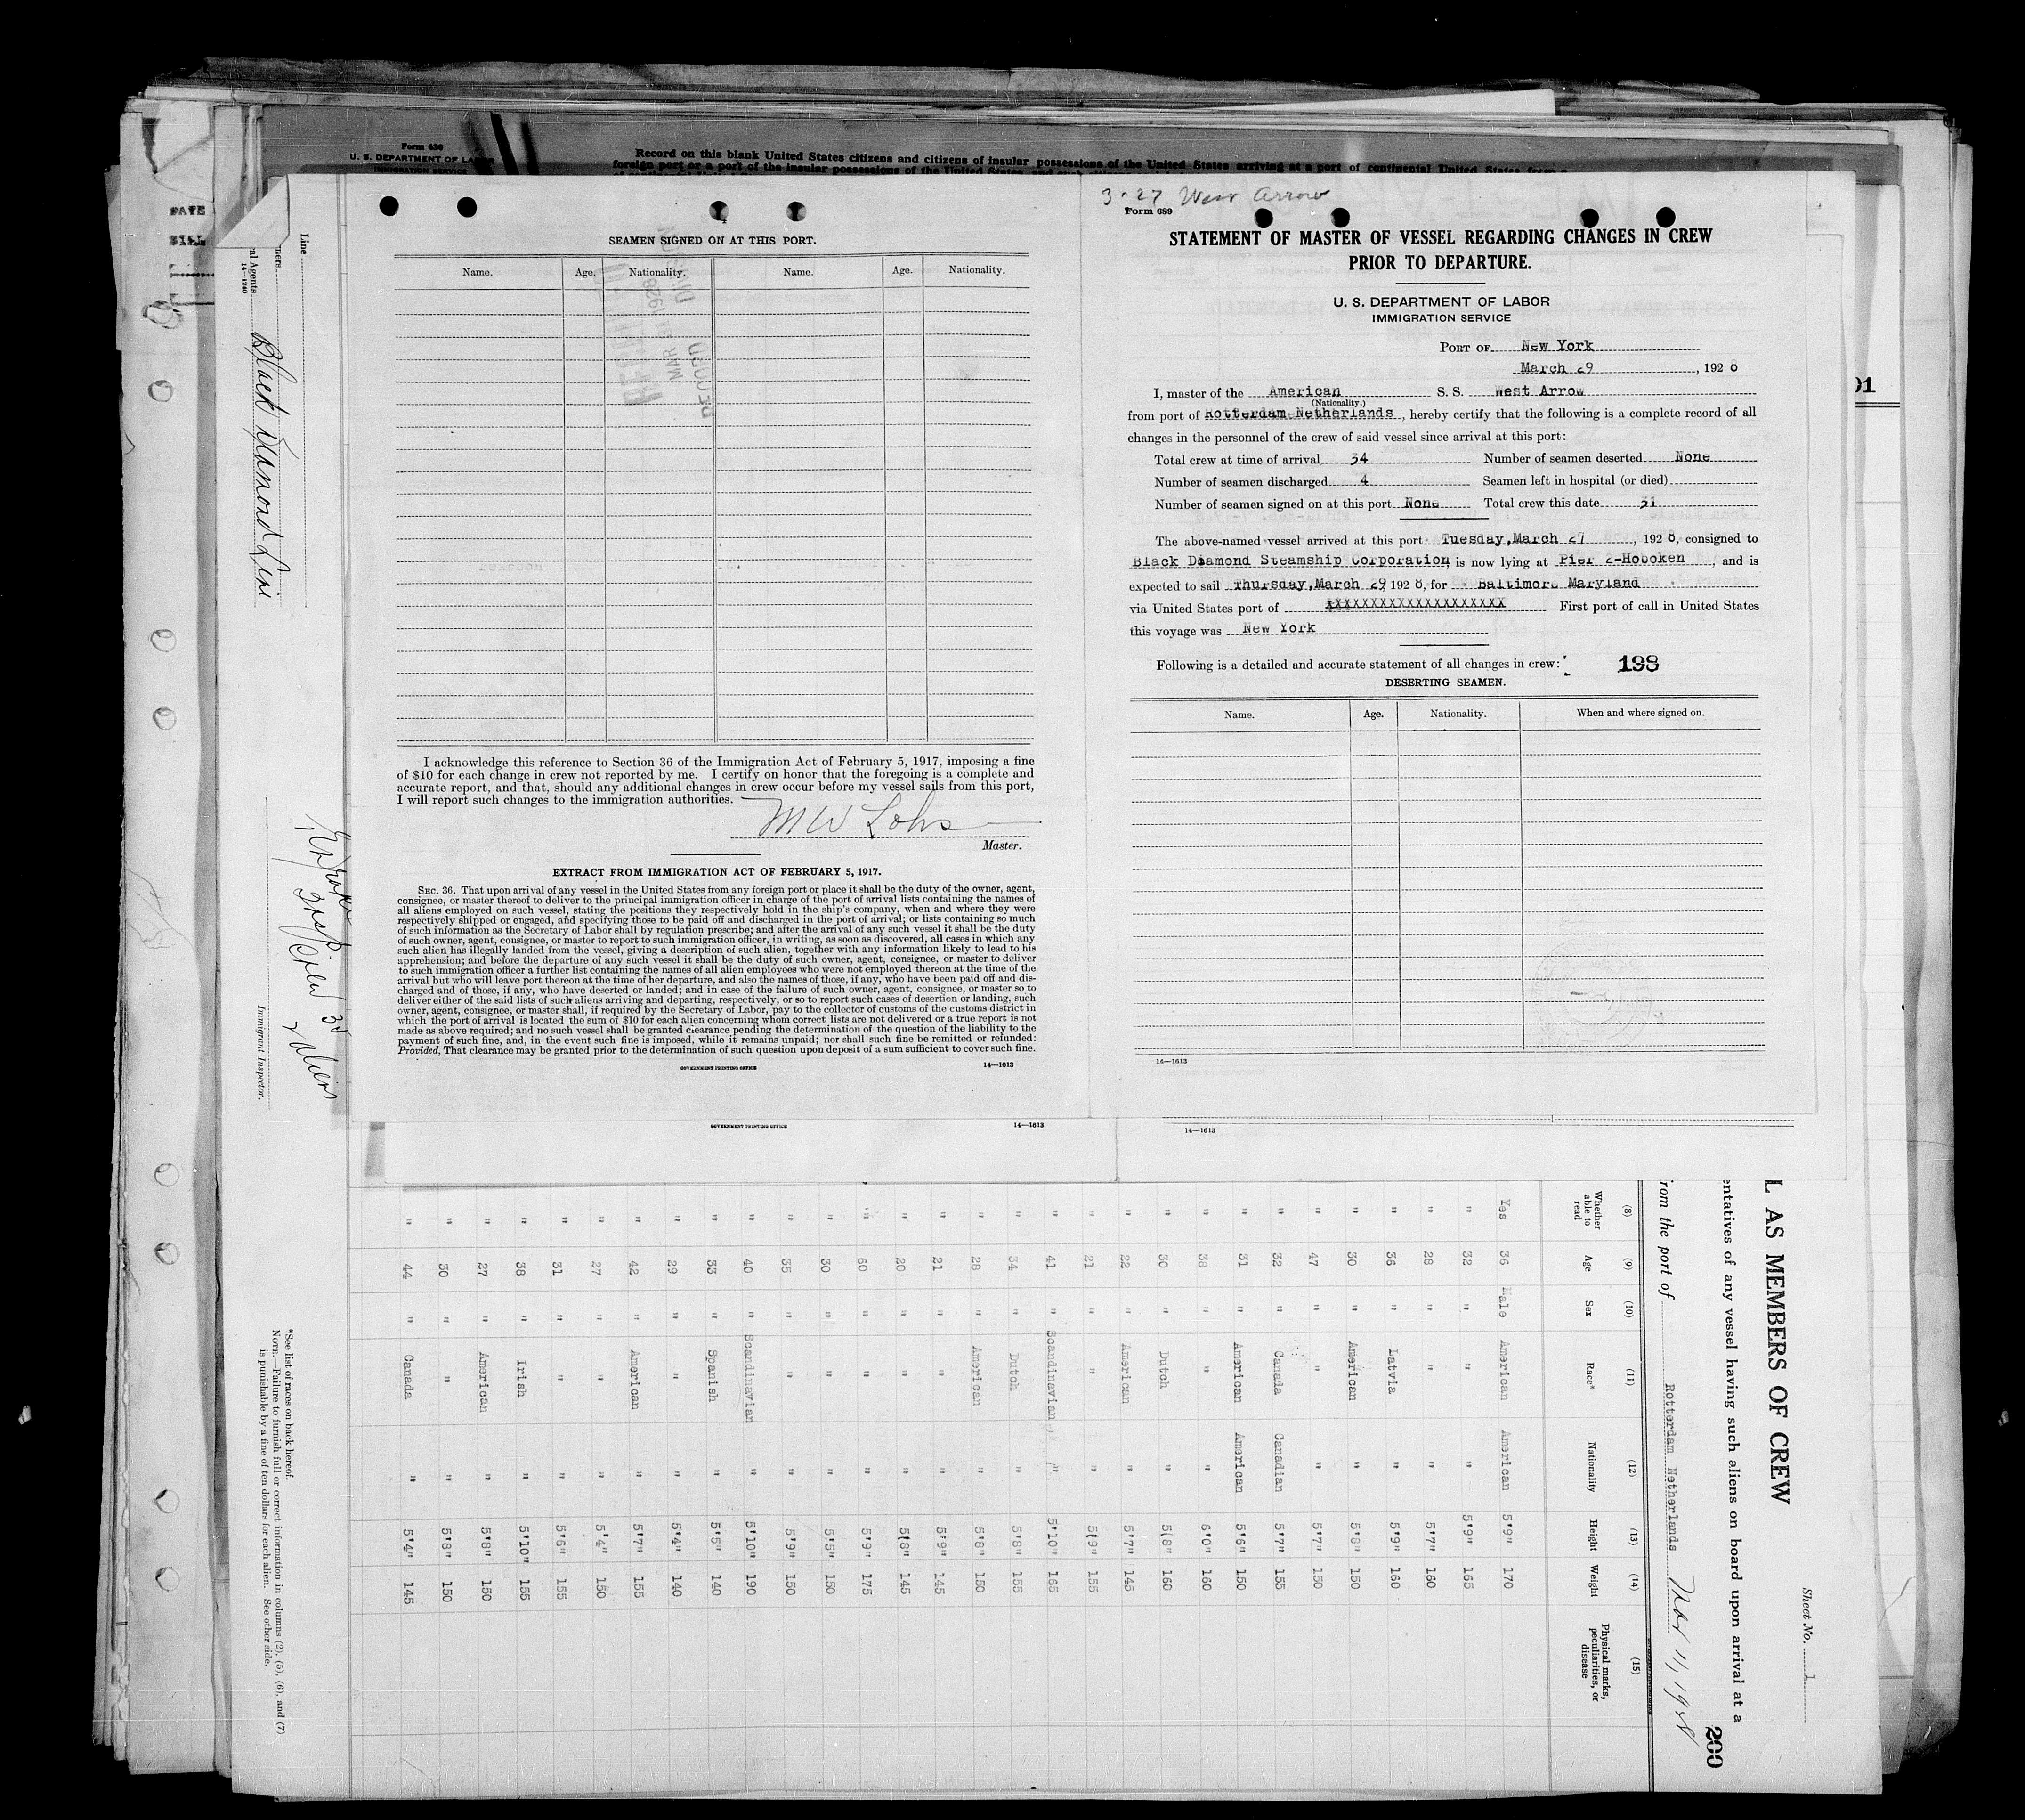 Form 630
U. S. DEPARTMENT OF LABOR
IMMIGRATION SERVICE
Record on this blank United States citizens and citizens of insular possessions of the United States arriving at a port of continental United States from a
foreign port or a port of the insular possessions of the United States
3-27 West Arrow
Form 689
STATEMENT OF MASTER OF VESSEL REGARDING CHANGES IN CREW
PRIOR TO DEPARTURE.
U. S. DEPARTMENT OF LABOR
IMMIGRATION SERVICE
PORT OF New York
March 29, 1928
I, master of the American S. S. West Arrow
(Nationality.)
from port of Rotterdam-Netherlands, hereby certify that the following is a complete record of all
changes in the personnel of the crew of said vessel since arrival at this port:
Total crew at time of arrival 34 Number of seamen deserted None
Number of seamen discharged 4 Seamen left in hospital (or died)
Number of seamen signed on at this port None Total crew this date 31
The above-named vessel arrived at this port Tuesday, March 27, 1928, consigned to
Black Diamond Steamship Corporation is now lying at Pier 2-Hoboken, and is
expected to sail Thursday, March 29 1928, for Baltimore Maryland
via United States port of XXXXXXXXXXXXXXXXXXXX First port of call in United States
this voyage was New York
Following is a detailed and accurate statement of all changes in crew:
198
DESERTING SEAMEN.
Name. Age. Nationality. When and where signed on.
14—1613
SEAMEN SIGNED ON AT THIS PORT.
Name. Age. Nationality. Name. Age. Nationality.
I acknowledge this reference to Section 36 of the Immigration Act of February 5, 1917, imposing a fine
of $10 for each change in crew not reported by me. I certify on honor that the foregoing is a complete and
accurate report, and that, should any additional changes in crew occur before my vessel sails from this port,
I will report such changes to the immigration authorities.
M W Lohs
Master.
EXTRACT FROM IMMIGRATION ACT OF FEBRUARY 5, 1917.
SEC. 36. That upon arrival of any vessel in the United States from any foreign port or place it shall be the duty of the owner, agent,
consignee, or master thereof to deliver to the principal immigration officer in charge of the port of arrival lists containing the names of
all aliens employed on such vessel, stating the positions they respectively hold in the ship's company, when and where they were
respectively shipped or engaged, and specifying those to be paid off and discharged in the port of arrival; or lists containing so much
of such information as the Secretary of Labor shall by regulation prescribe; and after the arrival of any such vessel it shall be the duty
of such owner, agent, consignee, or master to report to such immigration officer, in writing, as soon as discovered, all cases in which any
such alien has illegally landed from the vessel, giving a description of such alien, together with any information likely to lead to his
apprehension; and before the departure of any such vessel it shall be the duty of such owner, agent, consignee, or master to deliver
to such immigration officer a further list containing the names of all alien employees who were not employed thereon at the time of the
arrival but who will leave port thereon at the time of her departure, and also the names of those, if any, who have been paid off and dis-
charged and of those, if any, who have deserted or landed; and in case of the failure of such owner, agent, consignee, or master so to
deliver either of the said lists of such aliens arriving and departing, respectively, or so to report such cases of desertion or landing, such
owner, agent, consignee, or master shall, if required by the Secretary of Labor, pay to the collector of customs of the customs district in
which the port of arrival is located the sum of $10 for each alien concerning whom correct lists are not delivered or a true report is not
made as above required; and no such vessel shall be granted clearance pending the determination of the question of the liability to the
payment of such fine, and, in the event such fine is imposed, while it remains unpaid; nor shall such fine be remitted or refunded:
Provided, That clearance may be granted prior to the determination of such question upon deposit of a sum sufficient to cover such fine.
GOVERNMENT PRINTING OFFICE 14—1613
GOVERNMENT PRINTING OFFICE 14—1613
14—1613
91
Sheet No. 1
L AS MEMBERS OF CREW
entatives of any vessel having such aliens on board upon arrival at a
200
from the port of Rotterdam Netherlands Mar 11, 1928
(8) (9) (10) (11) (12) (13) (14) (15)
Whether able to read Age Sex Race* Nationality Height Weight Physical marks, peculiarities, or disease
Yes 36 Male American American 5'9" 170
" 32 " " " 5'9" 165
" 28 " " " 5'7" 160
" 36 " Latvia " 5'9" 160
" 30 " American " 5'8" 150
" 47 " " " 5'7" 150
" 32 " Canada Canadian 5'7" 155
" 31 " American American 5'6" 150
" 38 " " " 6'0" 160
" 30 " Dutch " 5(8" 160
" 22 " American " 5'7" 145
" 21 " " " 5(9" 155
" 41 " Scandinavian " 5'10" 165
" 34 " Dutch " 5'8" 155
" 28 " American " 5'8" 150
" 21 " " " 5'9" 145
" 20 " " " 5(8" 145
" 60 " " " 5'9" 175
" 30 " " " 5'5" 150
" 35 " " " 5'9" 150
" 40 " Scandinavian " 5'10" 190
" 33 " Spanish " 5'5" 140
" 29 " " " 5'4" 140
" 42 " American " 5'7" 155
" 27 " " " 5'4" 150
" 31 " " " 5'6" 155
" 38 " Irish " 5'10" 155
" 27 " American " 5'8" 150
" 30 " " " 5'8" 150
" 44 " Canada " 5'4" 145
Line
ners
al Agents Black Diamond Line
14—1240
Crew 34
2 aliens
Immigrant Inspector.
*See list of races on back hereof.
NOTE.—Failure to furnish full or correct information in columns (2), (5), (6), and (7)
is punishable by a fine of ten dollars for each alien. See other side.